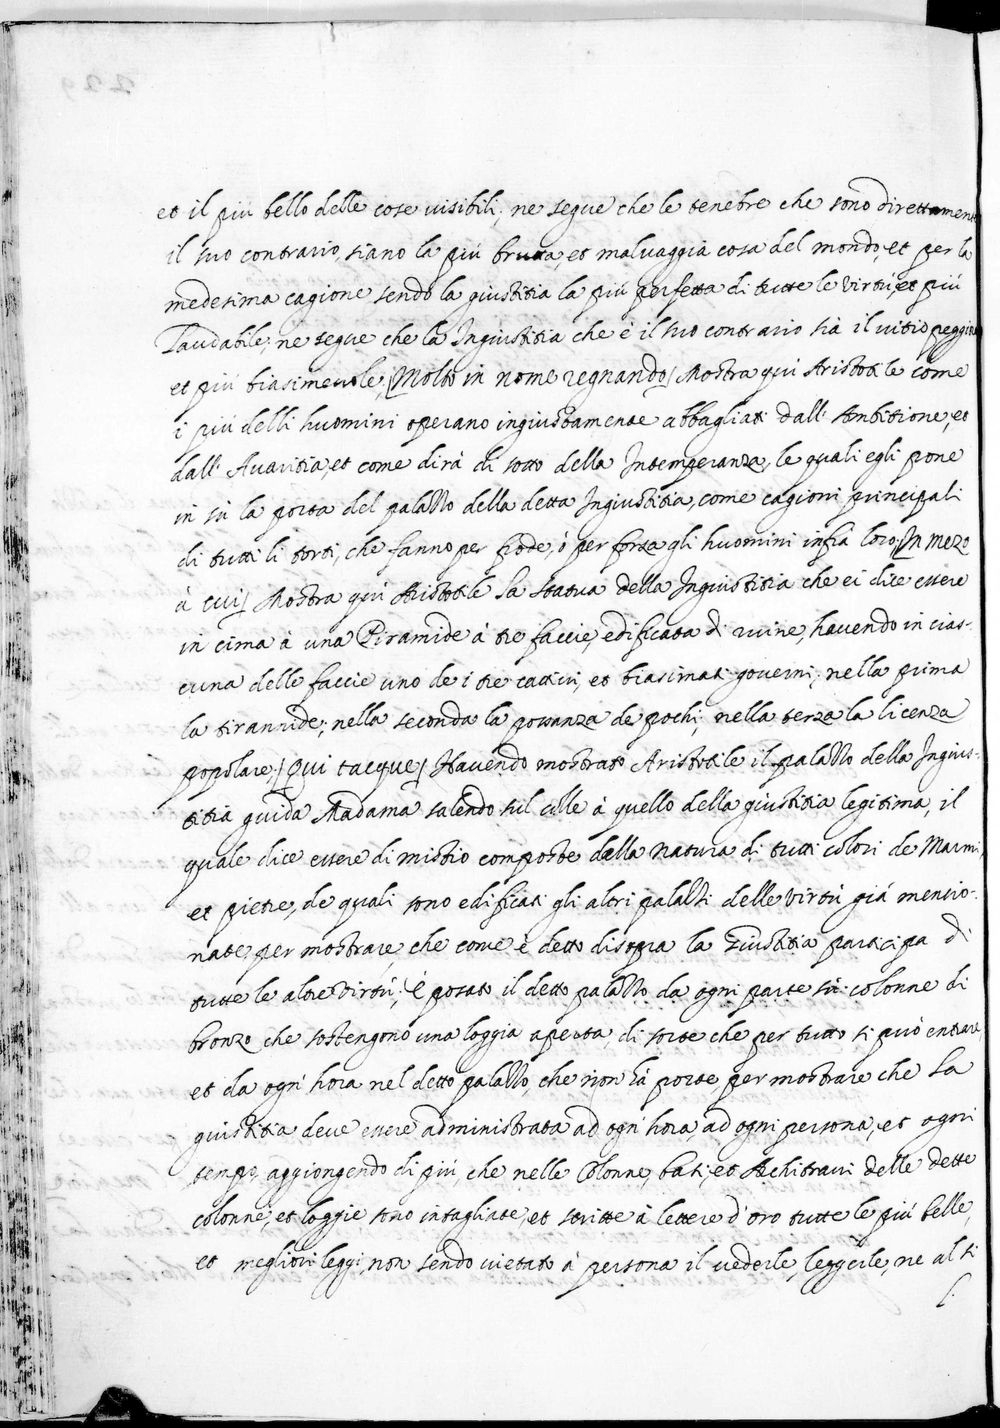 et il più bello delle cose visibili; ne segue che le tenebre che sono direttamente
il suo contrario, siano la più brutta, et malvaggia cosa del mondo, et per la
medesima cagione sendo la giustitia la più perfetta di tutte le virtù, et più
laudabile, ne segue che la Ingiustitia che è il suo contrario sia il vitio peggiore
et più biasimevole, / Molto in nome regnando / Mostra qui Aristotile come
i più delli huomini operano ingiustamente abbagliati dall' Ambitione, et
dall' Avaritia, et come dirà di sotto della Intemperanza, le quali egli pone
in sù la porta del palazzo della detta Ingiustitia, come cagioni principali
di tutti li torti, che fanno per frode, ò per forza gli huomini infra loro, / In mezo
à cui / Mostra qui Aristotile la statua della Ingiustitia che ei dice essere
in cima à una Piramide à tre faccie, edificata di ruine, havendo in cias-
cuna delle faccie uno de i tre cattivi, et biasimati governi; nella prima
la tirannide; nella seconda la possanza de pochi; nella terza la licenza
popolare, / Qui tacque / Havendo mostrato Aristotile il palazzo della Ingius-
titia guida Madama salendo sul colle à quello della giustitia legitima, il
quale dice essere di mistio composte dalla natura di tutti colori de Marmi,
et pietre, de quali sono edificati gli altri palazzi delle virtù già mentio-
nate per mostrare, che come è detto disopra la Giustitia participa di
tutte le altre virtù, / È posato il detto palazzo da ogni parte sù colonne di
bronzo che sostengono una loggia aperta, di sorte che per tutto si può entrare,
et da ogni hora nel detto palazzo, che non hà porte per mostrare che la
giustitia deve essere administrata ad ogni hora, ad ogni persona, et ogni
tempo, aggiongendo di più, che nelle Colonne, basi, et Architravi delle dette
colonne, et loggie sono intagliate, et scritte à lettere d'oro tutte le più belle,
et megliori leggi, non sendo vietato à persona il vederle, leggerle, ne al si